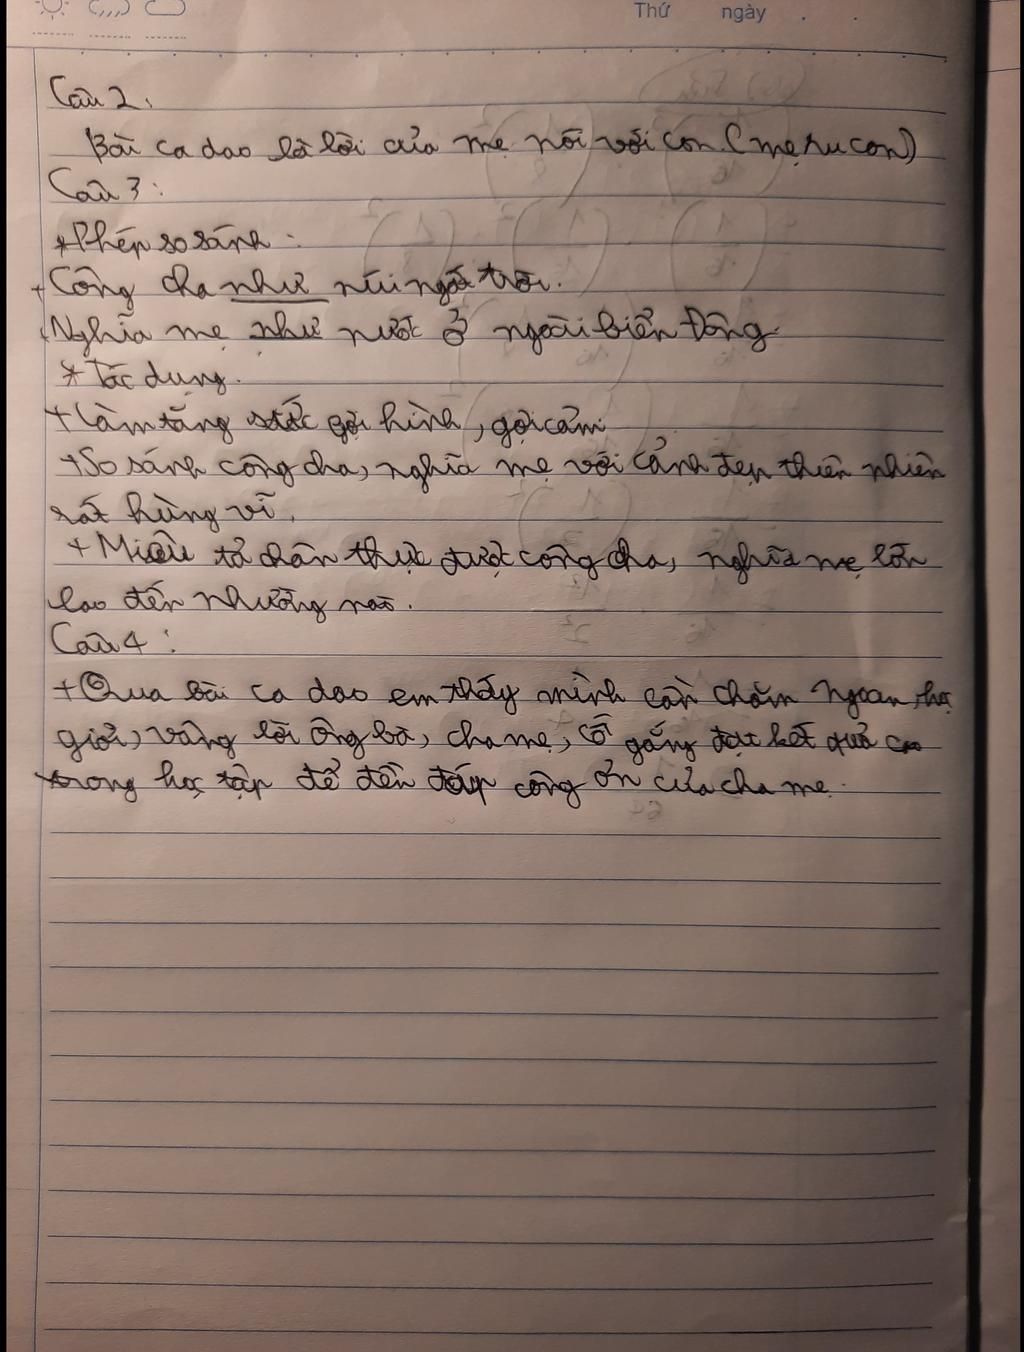 Thứ ngày . .
Câu 2:
Bài ca dao là lời của mẹ nói với con (mẹ ru con)
Câu 3:
*Phép so sánh:
+ Công cha như núi ngất trời.
+ Nghĩa mẹ như nước ở ngoài biển Đông
* Tác dụng.
+ Làm tăng sức gợi hình, gợi cảm
+ So sánh công cha, nghĩa mẹ với cảnh đẹp thiên nhiên
rất hùng vĩ.
+ Miêu tả chân thực được công cha, nghĩa mẹ lớn
lao đến nhường nào.
Câu 4:
+ Qua bài ca dao em thấy mình cần chăm ngoan, học
giỏi, vâng lời ông bà, cha mẹ, cố gắng đạt kết quả cao
trong học tập để đền đáp công ơn của cha mẹ.